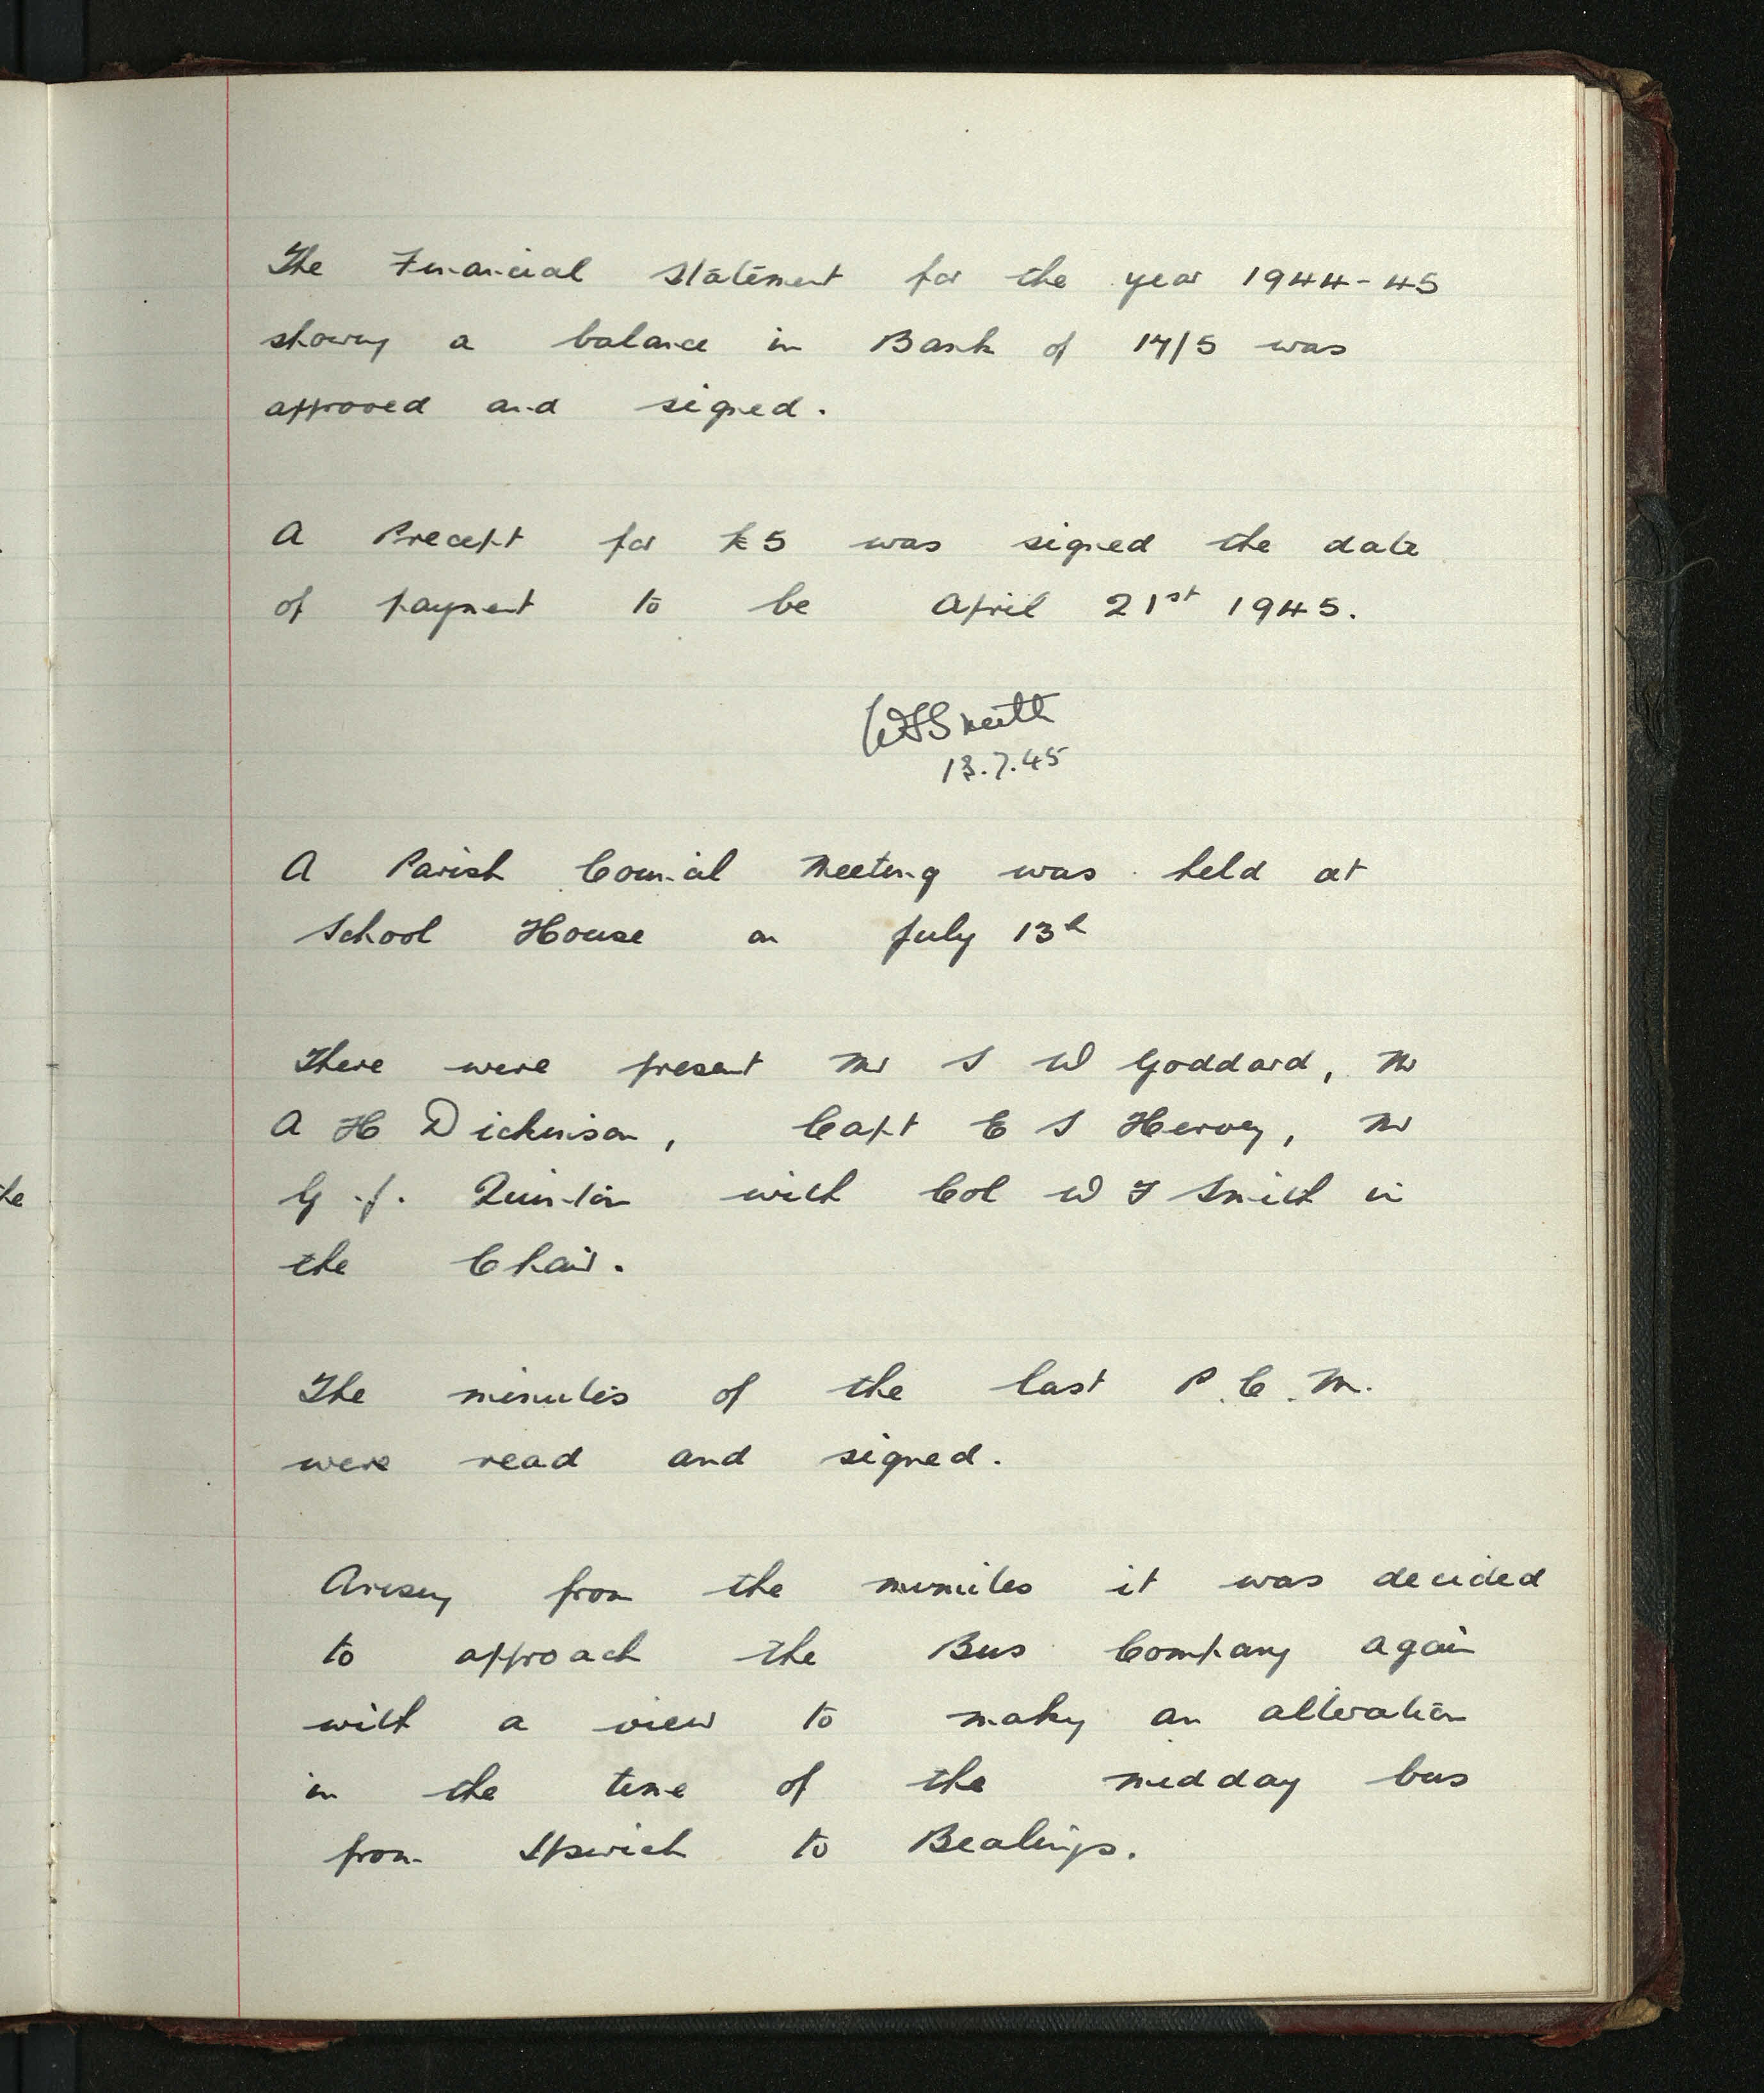 The Financial Statement for the year 1944-45
showing a balance in Bank of 17/5 was
approved and signed.
A Precept for £5 was signed the date
of payment to be April 21st 1945.
WFSmith
13.7.45
A Parish Council Meeting was held at
School House on July 13th
There were present Mr S W Goddard, Mr
A H Dickinson, Capt E S Hervey, Mr
G. J. Quinton with Col W F Smith in
the Chair.
The minutes of the last P.C.M.
were read and signed.
Arising from the minutes it was decided
to approach the Bus Company again
with a view to making an alteration
in the time of the midday bus
from Ipswich to Bealings.